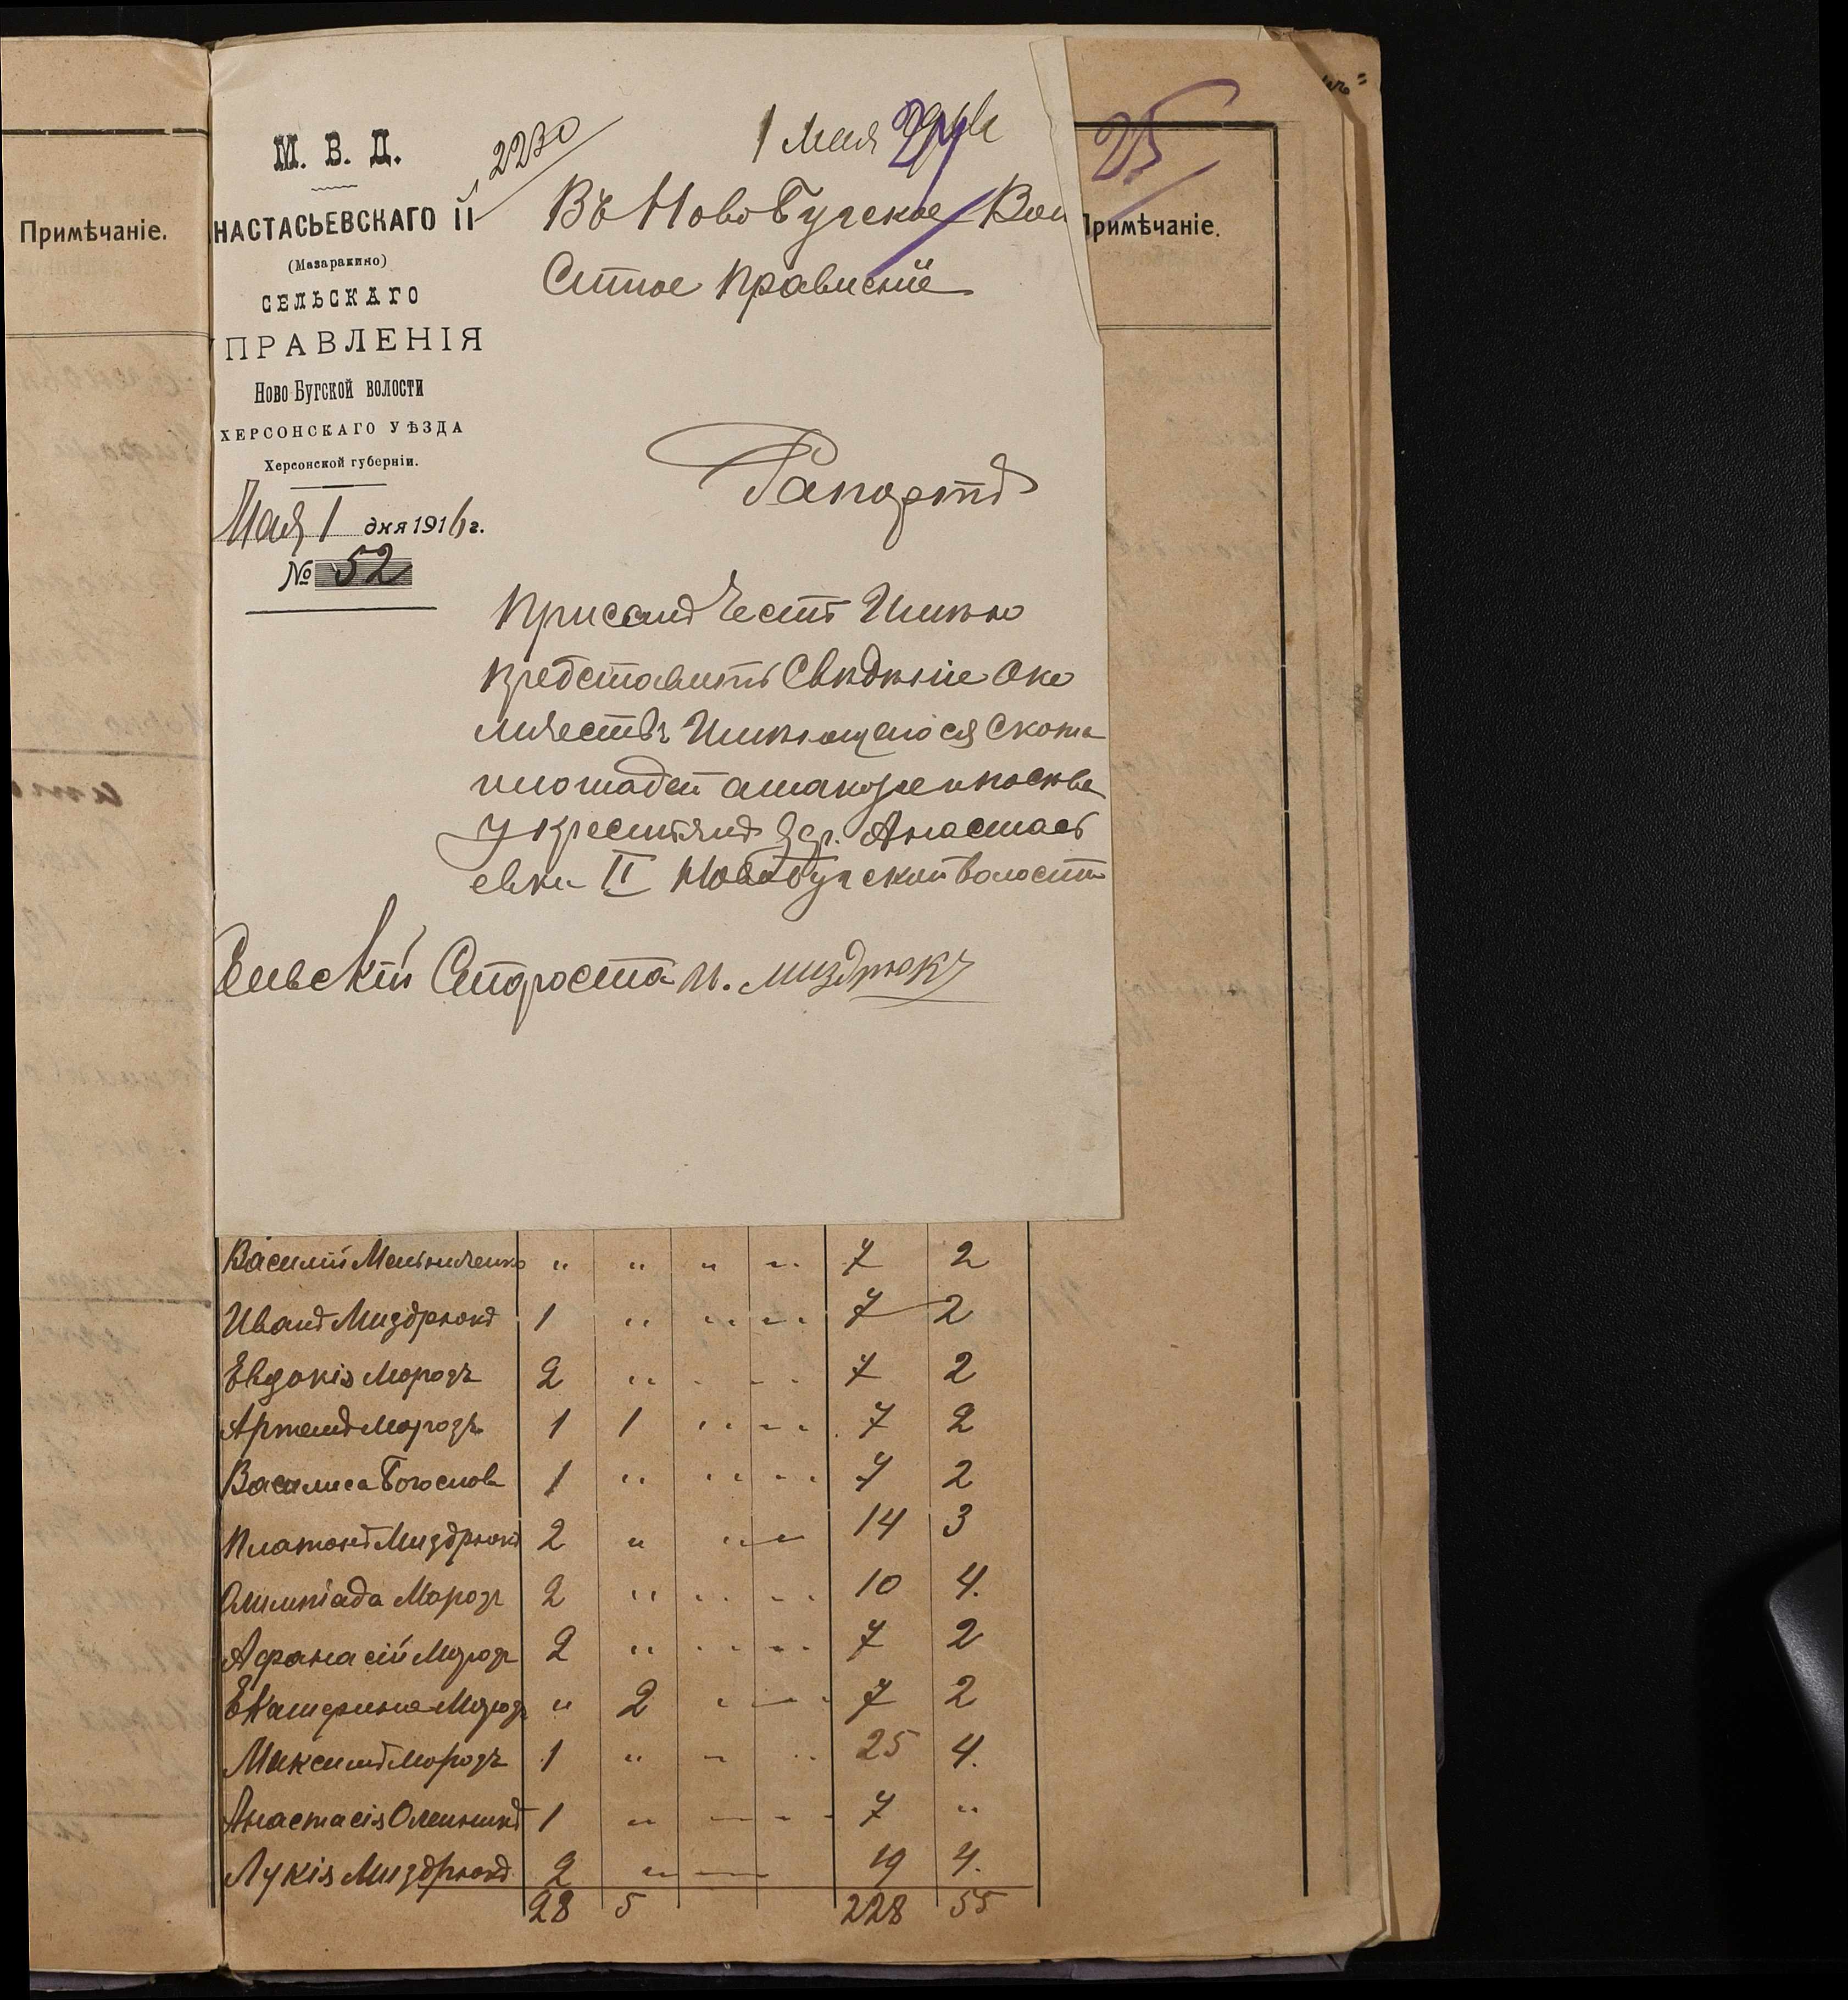 Примѣчаніе.
М. В. Д.
НАСТАСЬЕВСКАГО II
(Мазаракино)
СЕЛЬСКАГО
ПРАВЛЕНІЯ
Ново Бугской волости
ХЕРСОНСКАГО УѢЗДА
Херсонской губерніи.
Мая 1 дня 1916 г.
№ 52
2230
1 Мая
24
Въ Ново Бугское Вол
Стное Правленіе
Рапортъ
При семъ Честь Имѣю
представить Свѣдѣніе око
личествѣ Имѣющегося Скота
илошадей атакже и посѣве
укрестьянъ дер. Анастась
евки II Новобугской волости
Сельскій Староста И. Миздрюкъ
25
Примѣчаніе.
Василій Мельниченко " " " " 7 2
Иванъ Миздрюкъ 1 " " " 7 2
Евдокія Морозъ 2 " - - 7 2
Артемъ Морозъ 1 1 " " 7 2
Василиса Богослова 1 " " " 7 2
Платонъ Миздрюкъ 2 " " " 14 3
Олимпіада Морозъ 2 " " " 10 4.
Афанасій Морозъ 2 " " " 7 2
Екатерина Морозъ " 2 " " 7 2
Максимъ Морозъ 1 " " " 25 4.
Анастасія Олейникъ 1 " " " 7 "
Лукія Миздрюкъ 2 " — 19 4.
28 5 228 55